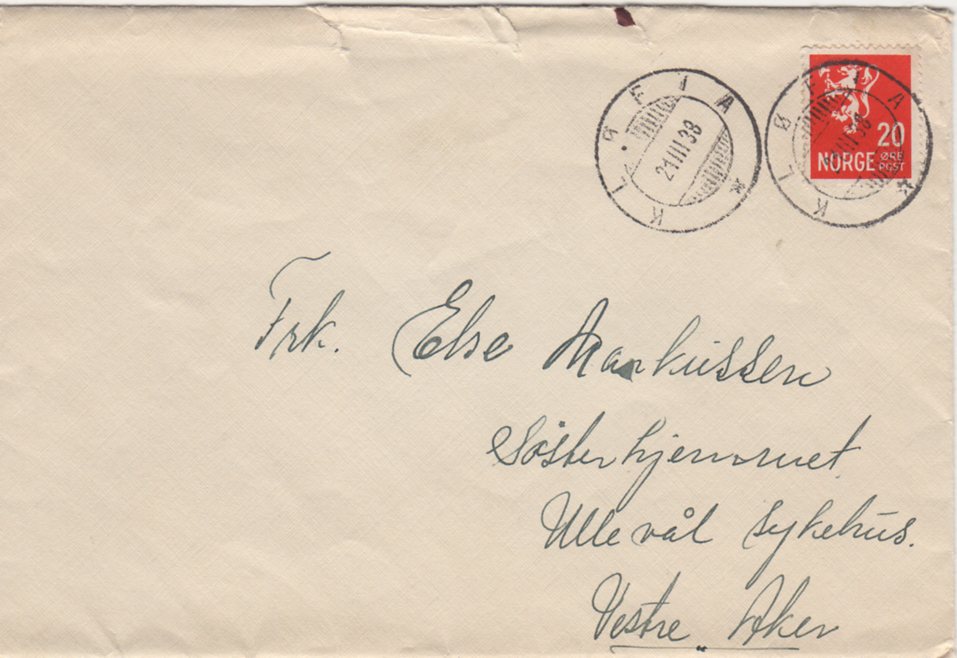 KLØFTA
21 III 38
KLØFTA
20
NORGE ØRE
POST
Frk. Else Markussen
Søsterhjemmet
Ullevål sykehus.
Vestre Aker